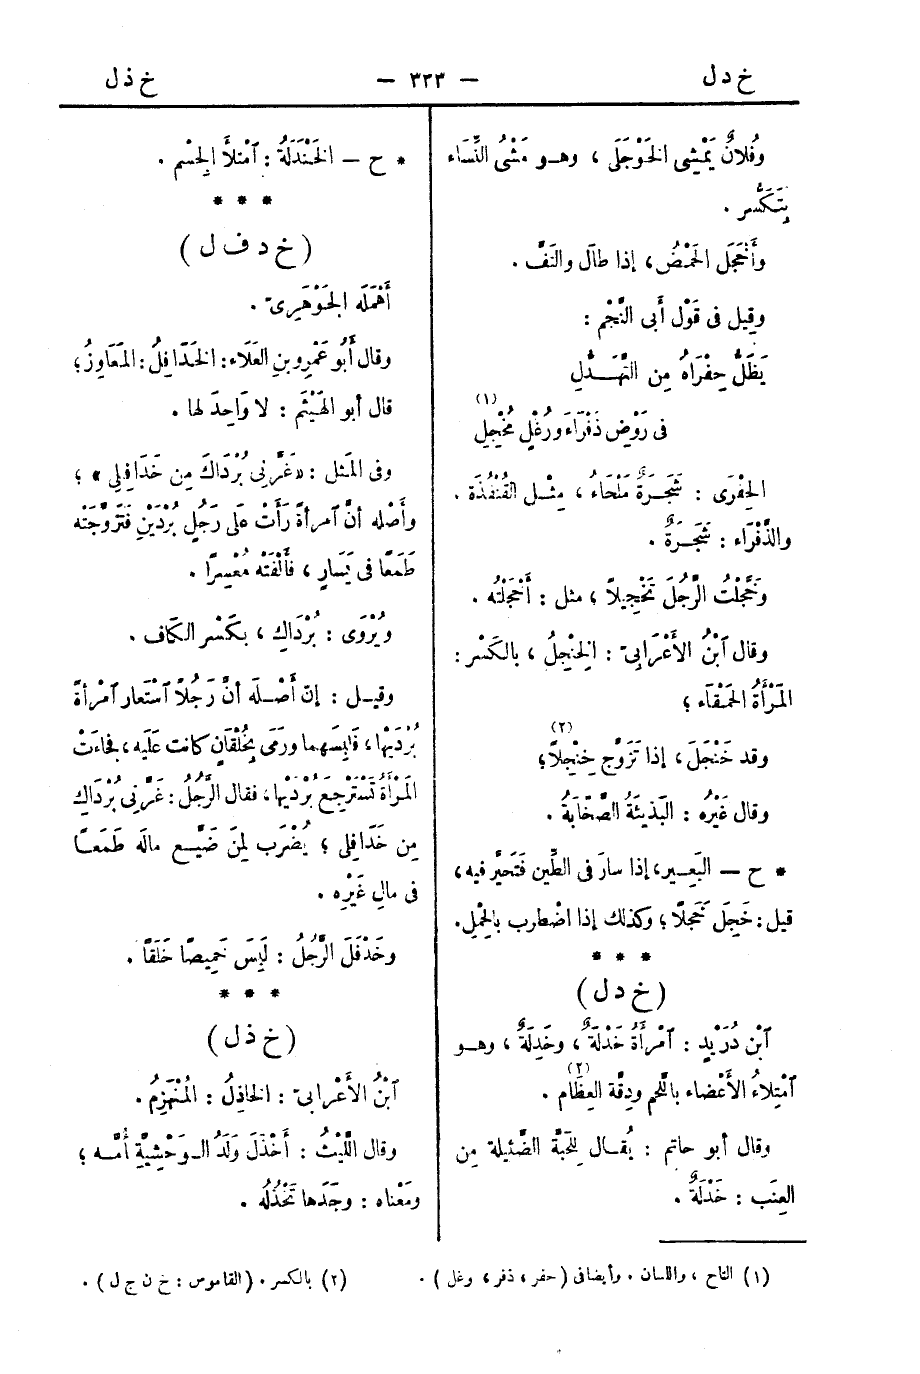 خ د ل — ٣٣٣ — خ ذل
وفُلانٌ يَمْشِي الخَوْجَلَى ، وهــو مَشْىُ النِّسَاء
بِتَكَسُّر .
وأَخْجَل الحَمْضُ ، إذا طالَ والْتَفَّ .
وقِيل فى قَوْل أَبى النَّجْم :
يَظَلُّ حِفْرَاهُ مِن التَّهَــدُّلِ
فى رَوْضِ ذَفْرَاءَ ورُغْلٍ مُخْجِلِ (١)
الحِفْرَى : شَجَــرَةٌ مَلْحَاءُ ، مِثْــل القُنْفُذَة .
والذَّفْرَاء : شَجَــرَةٌ .
وخَجَّلْتُ الرَّجُلَ تَخْجِيلاً ، مثل : أَخْجَلْتُه .
وقال ٱبْنُ الأَعْرَابىّ : الخِنْجِلُ ، بالكَسْر :
المَرْأَةُ الحَمْقَاء ؛
وقد خَنْجَلَ ، إذا تَزَوَّج خِنْجِلاً (٢) ؛
وقال غَيْرُه : البَذِيئَةُ الصَّخَّابَةُ .
* ح — البَعِــير ، إذا سارَ فى الطِّين فَتَحَيَّر فيه ،
قيل : خَجِلَ خَجَلاً ؛ وكذلك إذا اضْطرب بالحِمْل .
* * *
(خ د ل)
ٱبْن دُرَيْدٍ : ٱمْرأَةٌ خَدْلَةٌ ، وخَدِلَةٌ ، وهــو
ٱمْتِلاءُ الأَعْضاء باللَّحم ودِقَّة العِظَام (٢) .
وقال أبو حاتم : يُقــال لِلحَبَّة الضَّئيلة مِن
العِنَب : خَدْلَةٌ .
* ح — الخَنْدَلَةُ : ٱمْتلأَ الجِسْم .
* * *
(خ د ف ل)
أَهْمَلَه الجَوْهَرِىّ .
وقال أَبُو عَمْرِو بنِ العَلَاء : الخَدَافِلُ : المَعَاوِزُ ؛
قال أبو الهَيْثَم : لا وَاحِدَ لها .
وفى المَثل : «غَرَّنِى بُرْدَاكَ مِن خَدَافِلِى » ؛
وأَصْلُه أنَّ ٱمرأةً رَأَتْ عَلَى رَجُلٍ بُرْدَيْنِ فَتَزَوَّجَتْه
طَمَعًا فى يَسَارِه ، فأَلْفَتْه مُعْسِرًا .
ويُرْوَى : بُرْدَاكِ ، بكَسْر الكَاف .
وقيــل : إنّ أَصْــلَه أنَّ رَجُلاً ٱسْتَعار ٱمْرأةً
بُرْدَيْها ، فلَبِسَهما ورَمَى بخُلْقَانٍ كانت عَلَيه ، فجاءَتْ
المَرْأَةُ تَسْتَرْجِع بُرْدَيْها ، فقال الرَّجُلُ : غَرَّنِى بُرْدَاكِ
مِن خَدَافِلِى ؛ يُضْرَب لِمَنْ ضَيَّــع مالَه طَمَعــًا
فى مالِ غَيْرِه .
وخَدْفَلَ الرَّجُلُ : لَبِسَ قَمِيصًا خَلَقًا .
* * *
(خ ذ ل)
ٱبْنُ الأَعْرابىّ : الخاذِلُ : المُنْهَزِمُ .
وقال اللَّيْثُ : أَخْذَلَ وَلَدُ الــوَحْشِيَّةِ أُمَّــه ؛
ومَعْناه : وجَدَها تَخْذُلُه .
(١) التاج ، واللسان . وأيضا فى (حفر ، ذفر ، وغل) .
(٢) بالكسر . (القاموس : خ ن ج ل) .